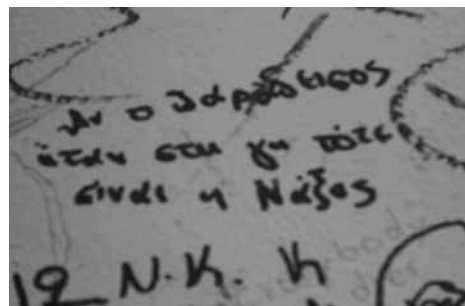 Αν ο Παράδεισος
ήταν στη γη τότε
είναι η Νάξος
12 N.K. K